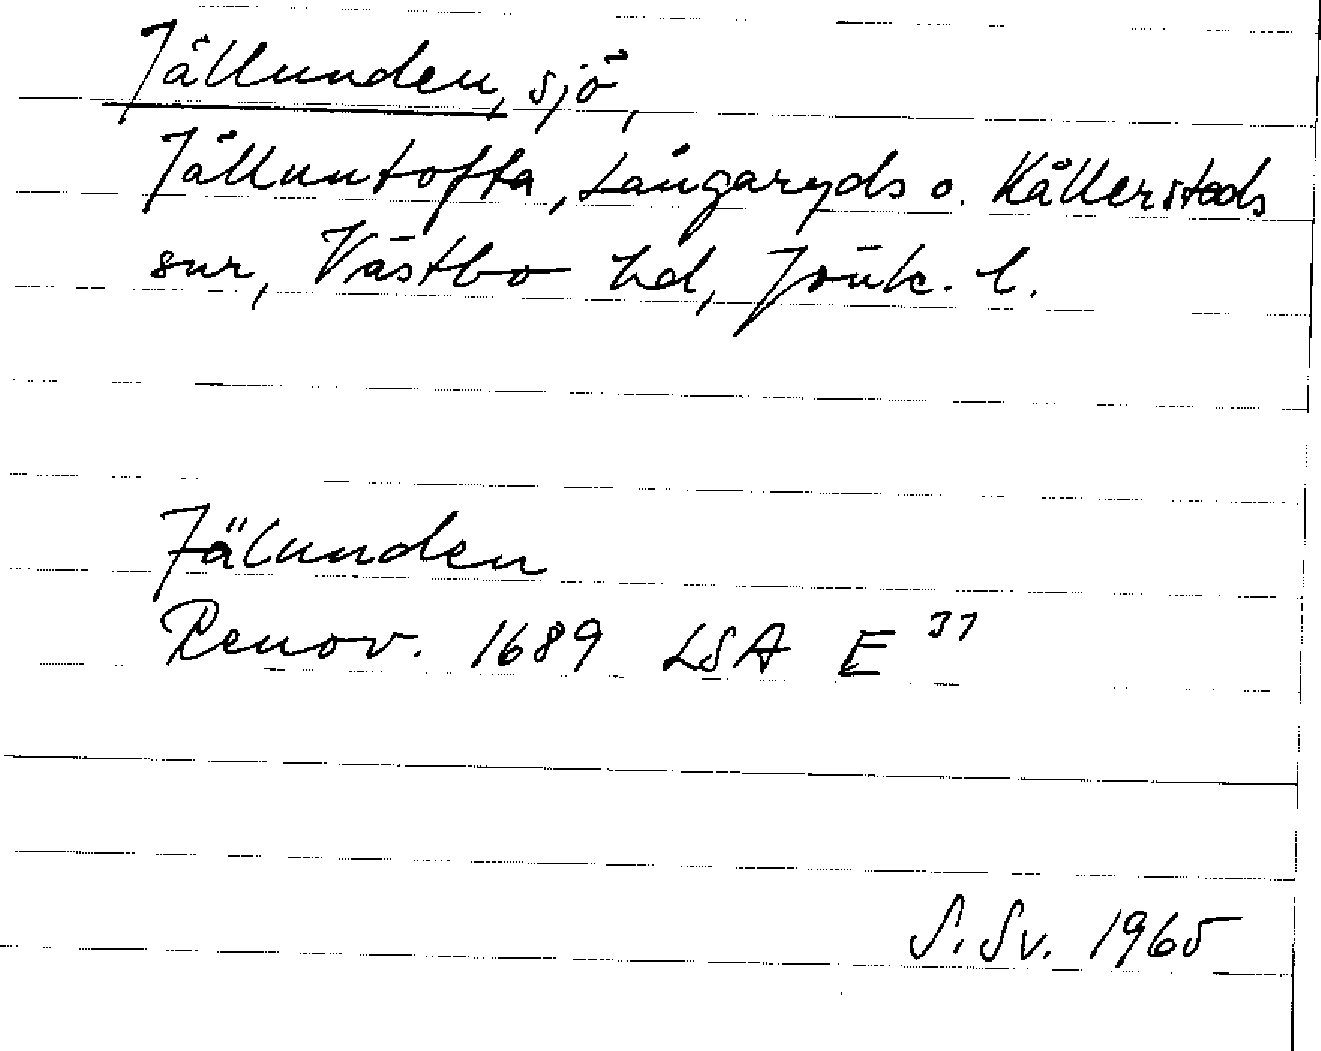 Jällunden, sjö,
Jälluntofta, Långaryds o. Källersteds
snr, Västbo hd, Jönk. l.
Jälunden
Renov. 1689 LSA E 37
S. Sv. 1965